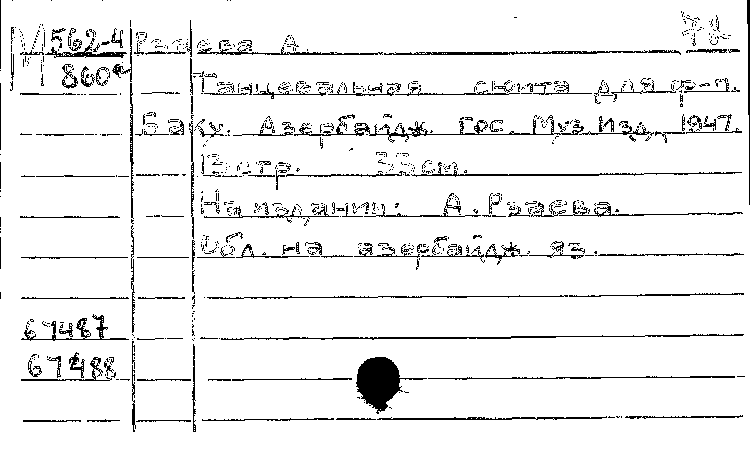 М 562-4 Рзаева А. 72
860а
Танцевальная сюита для ф-п.
Баку. Азербайдж. Гос. Муз. Изд., 1947.
13 стр. 33 см.
На издании: А. Рзаева.
Обл. на азербайдж. яз.
67487
67488